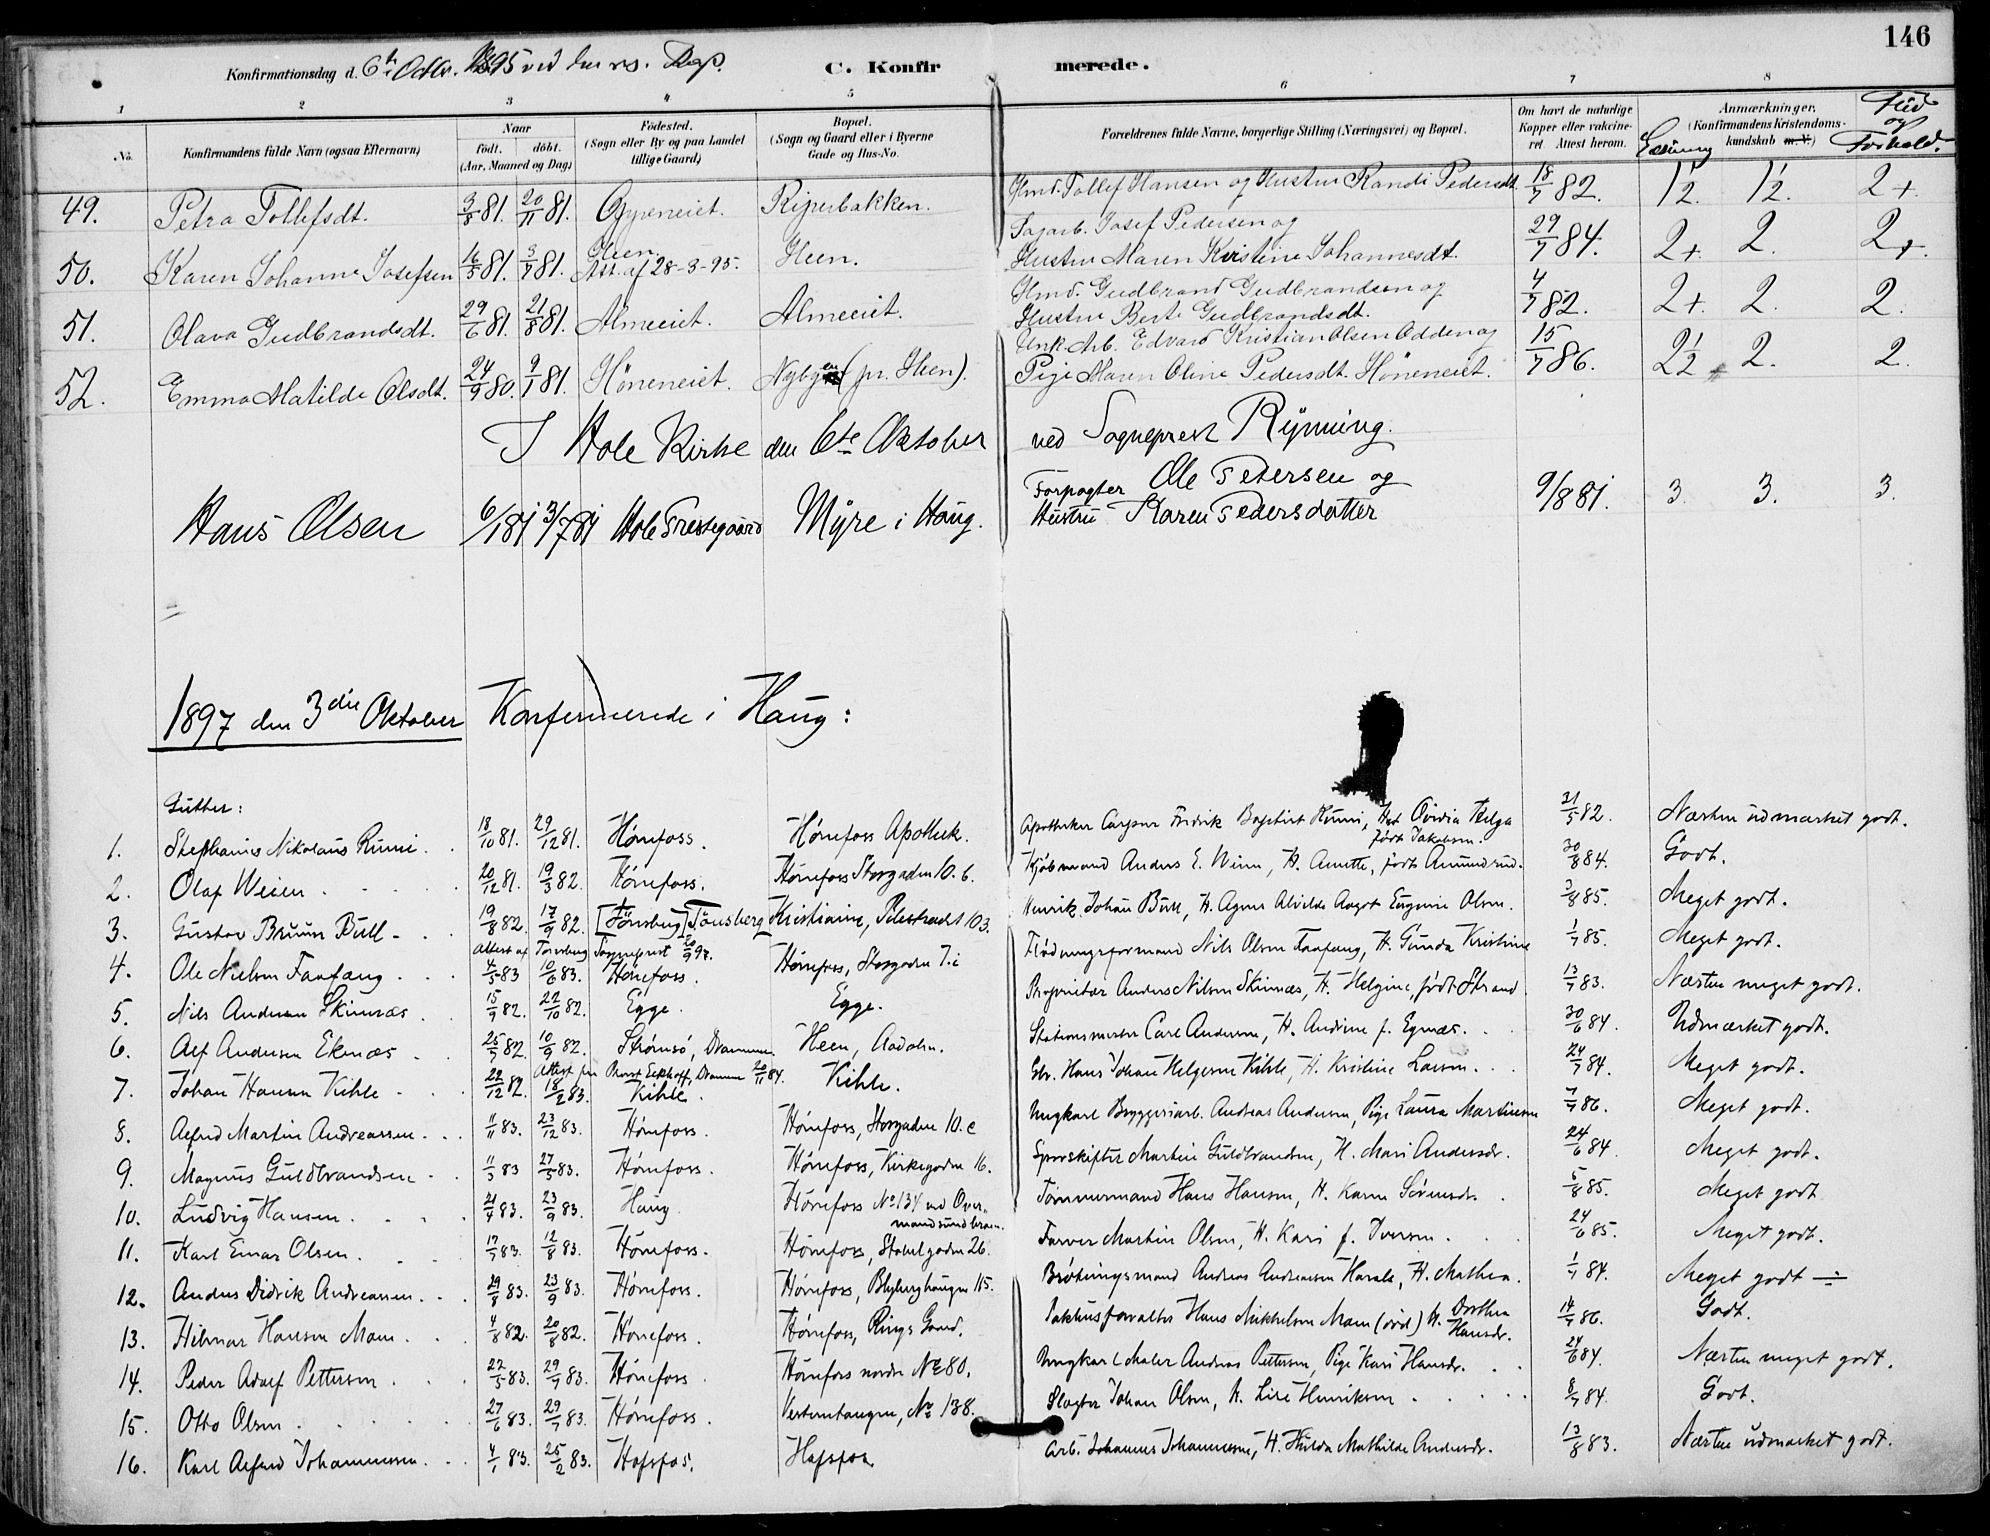 146
Konfirmationsdag d. 6te Octbr. 1895 ved den res. Kap.
C. Konfir merede.
1 2 3 4 5 6 7 8
No. Konfirmandens fulde Navn (ogsaa Efternavn) Naar født. døbt. (Aar, Maaned og Dag) Fødested. (Sogn eller By og paa Landet tillige Gaard) Bopæl. (Sogn og Gaard eller i Byerne Gade og Hus-No. Forældrenes fulde Navne, borgerlige Stilling (Næringsvei) og Bopæl. Om havt de naturlige Kopper eller vakcineret. Attest herom. Anmærkninger. (Konfirmandens Kristendomskundskab m. V.) Evne Flid og Forhold.
49. Petra Tollefsdt. 3/8 81. 20/11 81. Gyreneiet. Riperbakken. Hmd. Tollef Hansen og Hustru Randi Pedersdt. 18/7 82. 1½ 1½. 2+.
50. Karen Johanne Josefsen 16/5 81. 3/7 81. Heen. Att. af 28-3-95. Heen. Sagarb. Josef Pedersen og Hustru Maren Kristine Johannesdt. 29/7 84. 2+. 2. 2+.
51. Olava Gudbrandsdt. 29/6 81. 21/8 81. Almeeiet. Almeeiet. Hmd. Gudbrand Gudbrandsen og Hustru Berte Gudbrandsdt. 4/7 82. 2+. 2. 2.
52. Emma Matilde Olsdt. 24/9 80. 9/1 81. Høneneiet. Nybyen (pr. Heen). Unk. Arb. Edvard Kristian Olsen Odden og Pige Maren Oline Pedersdt. Høneneiet. 15/7 86. 2½ 2. 2.
I Hole Kirke den 6te Oktober ved Sogneprest Ryning.
Hans Olsen 6/1 81 3/7 81 Hole Prestegaard Myre i Haug. Forpagter Ole Petersen og Hustru Karen Pedersdatter 9/8 81. 3. 3. 3.
1897 den 3die Oktober Konfirmerede i Haug:
Gutter:
1. Stephanus Nikolaus Rumi. 18/10 81. 29/12 81. Hønefoss. Hønefoss Apothek. Apotheker Caspar Fredrik Baptist Rumi, Hst Ovidia Helga født Jakobsen. 21/5 82. Næsten udmærket godt.
2. Olaf Weien 20/12 81. 19/3 82. Hønefoss. Hønefoss Storgaden 10. b. Kjøbmand Anders E. Weien, H. Anette, født Amundrud. 30/8 84. Godt.
3. Gustav Bruun Bull 19/8 82. 17/9 82. [Tønsberg] Tönsberg Kristiania, Pilestrædt 103. Henrik Johan Bull, H. Agnes Alvilde Aagot Eugenie Olsen. 3/8 85. Meget godt.
Attest af Tønsberg Sogneprest 20/9 97.
4. Ole Nielsen Faafæng 4/5 83 10/6 83. Hønefoss. Hønefoss, Storgaden 7. i Flødningsformand Nils Olsen Faafæng, H. Gunda Kristine 1/7 85. Meget godt.
5. Nils Andersen Skinnæs 15/9 82. 22/10 82. Egge. Egge. Proprietær Anders Nilsen Skinnæs, H. Helgine, født Strand 13/7 83. Næsten meget godt.
6. Alf Andersen Eknæs 25/7 82. 10/9 82. Strømsø, Drammen. Heen, Aadalen. Stationsmester Carl Andersen, H. Andrine f. Egnæs. 30/6 84. Udmærket godt.
Attest fra Provst Eckhoff, Drammen 20/11 84.
7. Johan Hansen Kihle 22/12 82. 18/2 83. Kihle. Kihle. Gbr. Hans Johan Helgesen Kihle, H. Kristine Larsen. 24/7 84. Meget godt.
8. Alfred Martin Andreassen 11/11 83. 23/12 83. Hønefoss. Hønefoss, Storgaden 10. c Ungkarl Bryggeriarb. Andreas Andersen, Pige Laura Martinsen 7/7 86. Meget godt.
9. Magnus Guldbrandsen 11/3 83 27/5 83. Hønefoss. Hønefoss, Kirkegaden 16. Sporskifter Martin Guldbrandsen, H. Mari Andersdr. 24/6 84. Meget godt.
10. Ludvig Hansen. 21/4 83. 23/9 83. Haug. Hønefoss No 134 ved Overmandsundbroen. Tømmermand Hans Hansen, H. Karen Sørensdr. 5/8 85. Meget godt
11. Karl Einar Olsen. 17/7 83. 12/8 83. Hønefoss. Hønefoss, Stabelgaden 26. Farver Martin Olsen, H. Kari f. Iversen. 24/6 85. Meget godt.
12. Anders Didrik Andreassen. 29/8 83. 23/9 83. Hønefoss. Hønefoss, Blybergshaugen 115. Brøtningsmand Andreas Andreassen Harale, H. Mathea. 1/7 84. Meget godt ÷
13. Hilmar Hansen Moen 4/8 82. 20/8 82. Hønefoss. Hønefoss, Rings Gaard. Pakhusforvalter Hans Mikkelsen Moen (død) H. Dorthea Hansdr. 14/7 86. Godt.
14. Peder Adolf Pettersen 22/5 83. 29/7 83. Hønefoss Hønefoss nordre No 80. Ungkarl Maler Andreas Pettersen, Pige Kari Hansdr. 24/6 84. Næsten meget godt.
15. Otto Olsen 27/6 83. 29/7 83. Hønefoss. Vesterntangen, No 138. Slagter Johan Olsen, H. Lise Henriksen 8/7 84. Godt.
16. Karl Alfred Johannessen. 4/1 83. 25/2 83. Hofsfos. Hofsfos. Arb. Johannes Johannessen, H. Hilda Mathilde Andersdr. 13/8 83. Næsten udmærket godt.